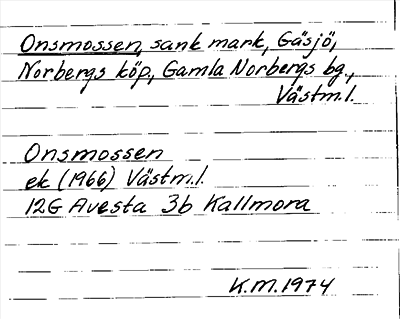 Onsmossen, sank mark, Gäsjö,
Norbergs köp, Gamla Norbergs bg.,
Västm.l.
Onsmossen
ek (1966) Västm.l.
12G Avesta 3b Kallmora
K.M. 1974